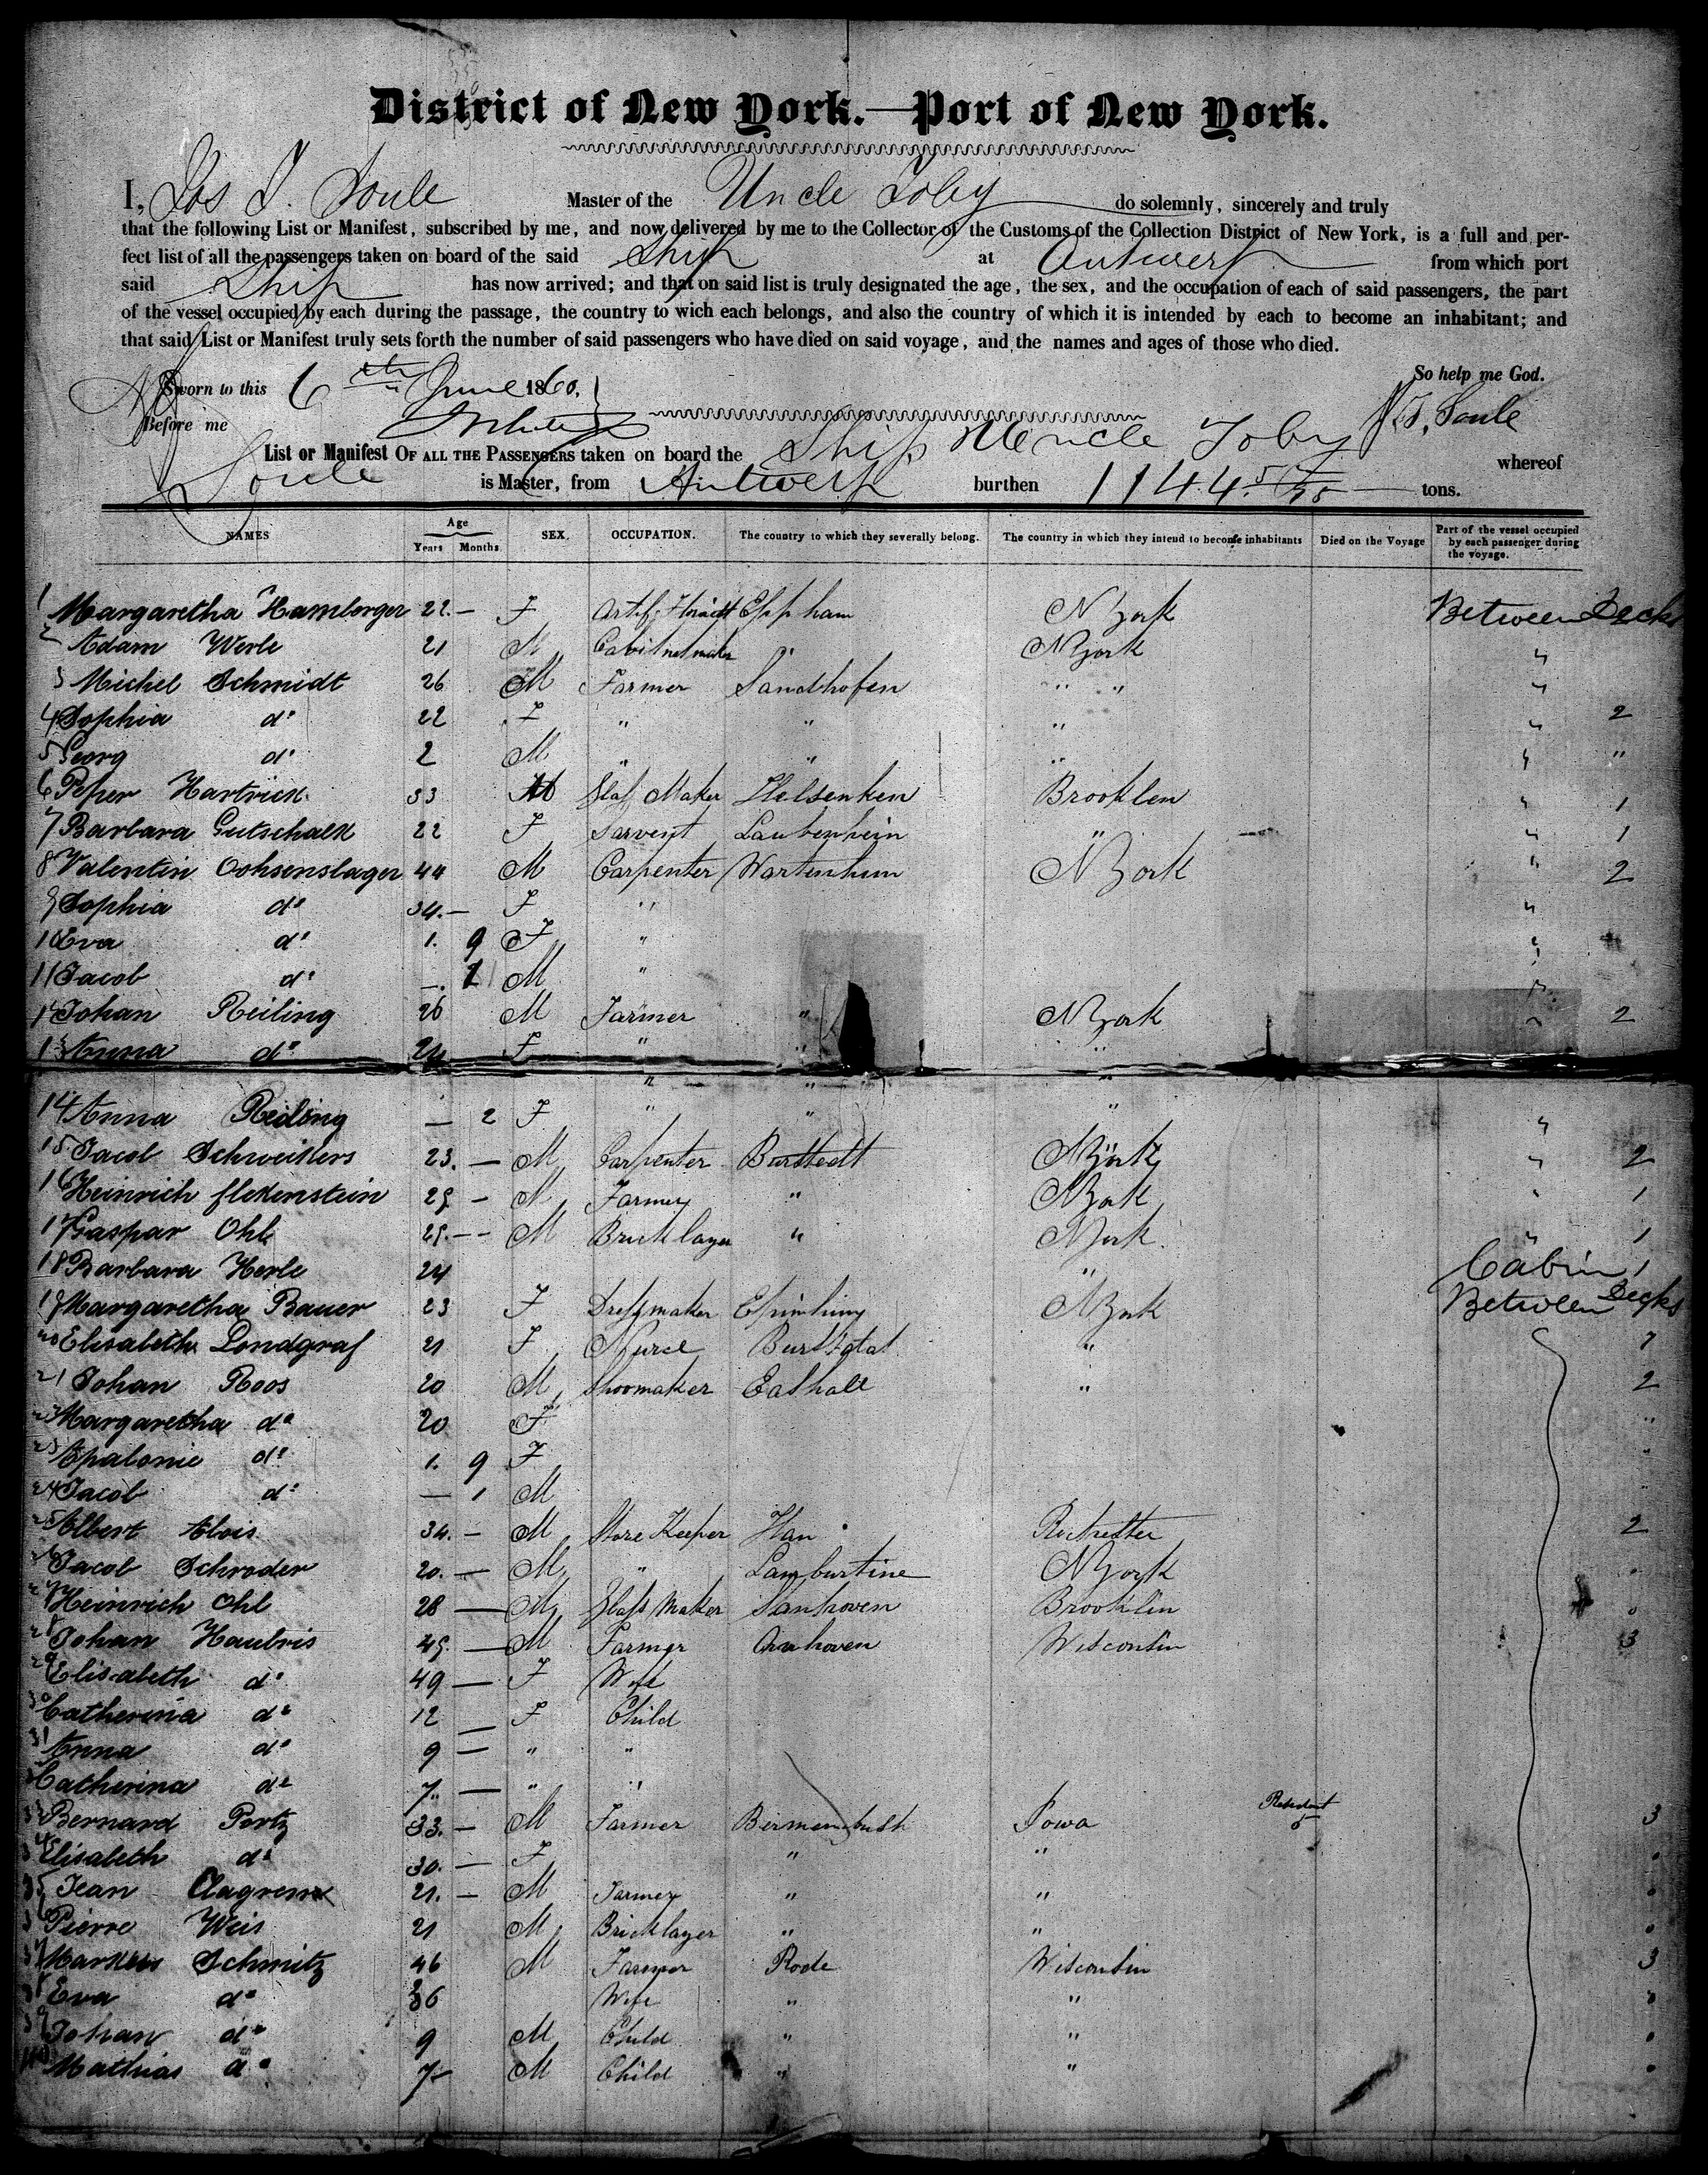 District of New York.—Port of New York.
I, Jos S. Soule Master of the Uncle Toby do solemnly, sincerely and truly
that the following List or Manifest, subscribed by me, and now delivered by me to the Collector of the Customs of the Collection District of New York, is a full and per-
fect list of all the passengers taken on board of the said Ship at Antwerp from which port
said Ship has now arrived; and that on said list is truly designated the age, the sex, and the occupation of each of said passengers, the part
of the vessel occupied by each during the passage, the country to wich each belongs, and also the country of which it is intended by each to become an inhabitant; and
that said List or Manifest truly sets forth the number of said passengers who have died on said voyage, and the names and ages of those who died.
So help me God.
Sworn to this 6th June 1860.
Before me
Soule
List or Manifest OF ALL THE PASSENGERS taken on board the Ship Uncle Toby whereof
Soule is Master, from Antwerp burthen 1144 tons.
NAMES Age Years Months SEX. OCCUPATION. The country to which they severally belong. The country in which they intend to become inhabitants Died on the Voyage Part of the vessel occupied by each passenger during the voyage.
1 Margaretha Hamberger 22.— F Eppham N York Between Decks
2 Adam Werle 21 M Cabitnetmaker " N York "
3 Michel Schmidt 26 M Farmer Sandhofen " " "
4 Sophia do 22 F " " " " 2
5 Georg do 2 M " " " " "
6 Peper Hartrick 33 M Glas Maker Helsenken Brooklen " 1
7 Barbara Gutschalk 22 F Sarvent Laubenhein " " 1
8 Valentin Ochsenslager 44 M Carpenter Wartenhum N York " 2
9 Sophia do 34.— F " "
10 Eva do 1. 9 F " "
11 Jacob do —. 1 M " "
12 Johan Reiling 26 M Farmer " N York " 2
13 Anna do 24 F " " "
" " "
14 Anna Reiling — 2 F " " " "
15 Jacob Schweikers 23.— M Carpenter Burstedt N York " 2
16 Heinrich flekenstein 29 — M Farmer " N York " 1
17 Gaspar Ohl 25.— M Bricklayer " N York " 1
18 Barbara Herle 24 " Cabin 1
19 Margaretha Bauer 23 F Dressmaker N York Between Decks
20 Elisabeth Londgraf 21 F Nurse Burstatat " 1
21 Johan Roos 20 M Shoomaker Eashalt " 2
Margaretha do 20 F "
23 Apalonie do 1. 9 F "
24 Jacob do — 1 M "
25 Albert Alois 34.— M Store Keeper Han Rochester 2
26 Jacob Schroder 20.— M " Lamburtine N York
27 Heinrich Ohl 28 — M Glass Maker Sanhoven Brooklin
28 Johan Haubris 45.— M Farmer Arnhoven Wisconsin 3
29 Elisabeth do 49 — F Wife
30 Catherina do 12 — F Child
31 Anna do 9 — " "
Catherina do 7.— " "
33 Bernard Portz 33.— M Farmer Birmenbush Iowa 3
34 Elisabeth do 30.— F " "
35 Jean 21.— M Farmer " "
36 Pierre Weis 21 M Bricklayer " "
37 Markus Schmitz 46 M Farmer Rode Wisconsin 3
38 Eva do 36 Wife " "
39 Johan do 9 M Child " "
40 Mathias do 7— M Child " "